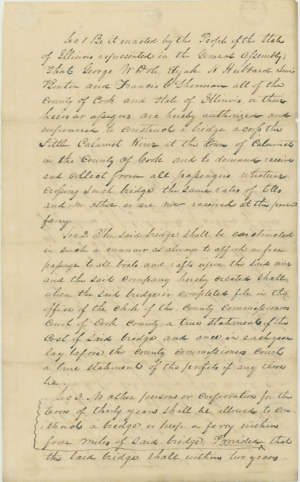 Sec 1 Be it enacted by the People of the State
of Illinois represented in the General Assembly;
That George W Dole, Hugh H Hubbard
Benton and Francis C Sherman all of the
County of Cook and State of Illinois, or their
heirs or assigns are hereby authorized and
empowered to construct a bridge across the
Little Calamick River at the town of Calamick
in the County of Cook and to demand receive
and collect from all passengers whatever
crossing such bridge the same rates of tolls
and no other as are now received at the present
ferry.
Sec 2 The said bridge shall be constructed
in such a manner as always to afford a free
passage to all boats and rafts upon the said river
and the said company hereby created shall,
when the said bridge is completed file in the
office of the clerk of the County Commissioners
Court of Cook County a true statement of the
cost of said bridge and once in each year
lay before the County Commissioners Court
a true statement of the profits if any there
be.
Sec 3 No other persons or corporation for the
term of thirty years shall be allowed to con-
struct a bridge or keep a ferry within
four miles of said bridge. Provided, that
the said bridge shall within two years